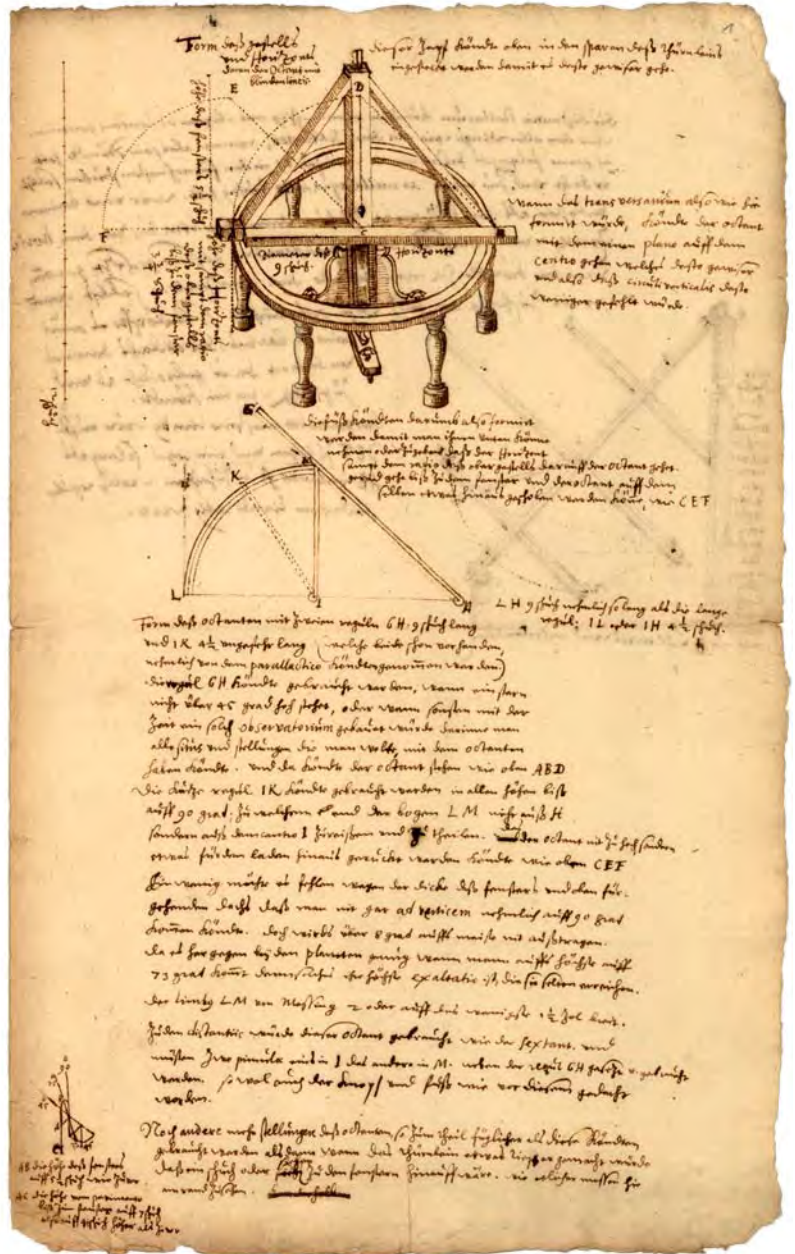 1
Form deß gestells
und Horizonts
darin der Octant und
dieser Zapf köndte oben in den sparen deß Thürnleins
eingesteckt werden damit es deste gewiser gehe.
E
D
F
C
Wann das transversarium also wie hie
formirt würde, köndte der octant
mit dem einen plano auff dem
centro gehen welches deste gewiser
und also diß circuli verticalis deste
weniger gefehlt würde.
Diameter deß Horizonts
9 schuch.
die füß köndten darumb also formirt
werden damit man ihnen unten könne
nehmen oder zugeben daß der Horizont
sampt dem radio deß obergestells darauff der octant gehet
gerad gehe biß zu dem fenster und der octant auff dem
selben etwas hinauß geschoben werden köne, wie CEF
G
M
K
L
I
H
LH 9 schuch nehmlich so lang als die lange
regul; IL oder IH 4½ schuch.
Form deß octanten mit zweien reguln GH. 9 schuch lang
und IK 4½ ungefehr lang (welche beide schon vorhanden,
nehmlich von dem parallactico köndten genommen werden)
die regul GH köndte gebraucht werden, wann ein stern
nicht über 45 grad hoch stehet, oder wann sonsten mit der
Zeit ein solch observatorium gebauet würde darinne man
alle situs und stellungen die man wolte, mit dem octanten
haben köndte. und da köndte der octant stehen wie oben ABD
Die kurtze regul IK köndte gebraucht werden in allen höhen biß
auff 90 grad; zu welchem end der bogen LM nicht auß H
sondern auß dem centro I zureißen und zu theilen. der octant nit zu hoch sondern
etwas für dem laden hinauß geruckt werden köndte wie oben CEF
Ein wenig möchte es fehlen wegen der dicke deß fensters und oben für-
gehenden dachs daß man nit gar ad verticem nehmlich auff 90 grad
kommen köndte. doch wirds über 8 grad auffs meiste nit außtragen.
da es hergegen bey den planeten genug wann man auffs höchste auff
73 grad kommt dann solches ihr höchste exaltatio ist, die sie selten erreichen.
Der limbus LM von Messing 2 oder auff das wenigste 1½ Zol breit.
Zu den distantiis würde dieser octant gebraucht wie der sextant. und
müsten zwo pinnulæ eins in I das andere in M. neben der regul GH gesetzt u. gebraucht
werden. so wol auch der knopf und füß wie vor diesem gedacht
worden.
Noch andere mehr stellungen deß octanten so zum theil füglicher als diese köndten
gebraucht werden als dann wann das thürnlein etwas tieffer gemacht würde
daß ein schuch oder zu den fenstern hinauff wäre. wie etlicher massen hie
am rand zusehen.
AB die höhe deß fensters
auff 5 schuch wie zuvor
AC die höhe vom paviment
biß zum fenster auff 7 schuch